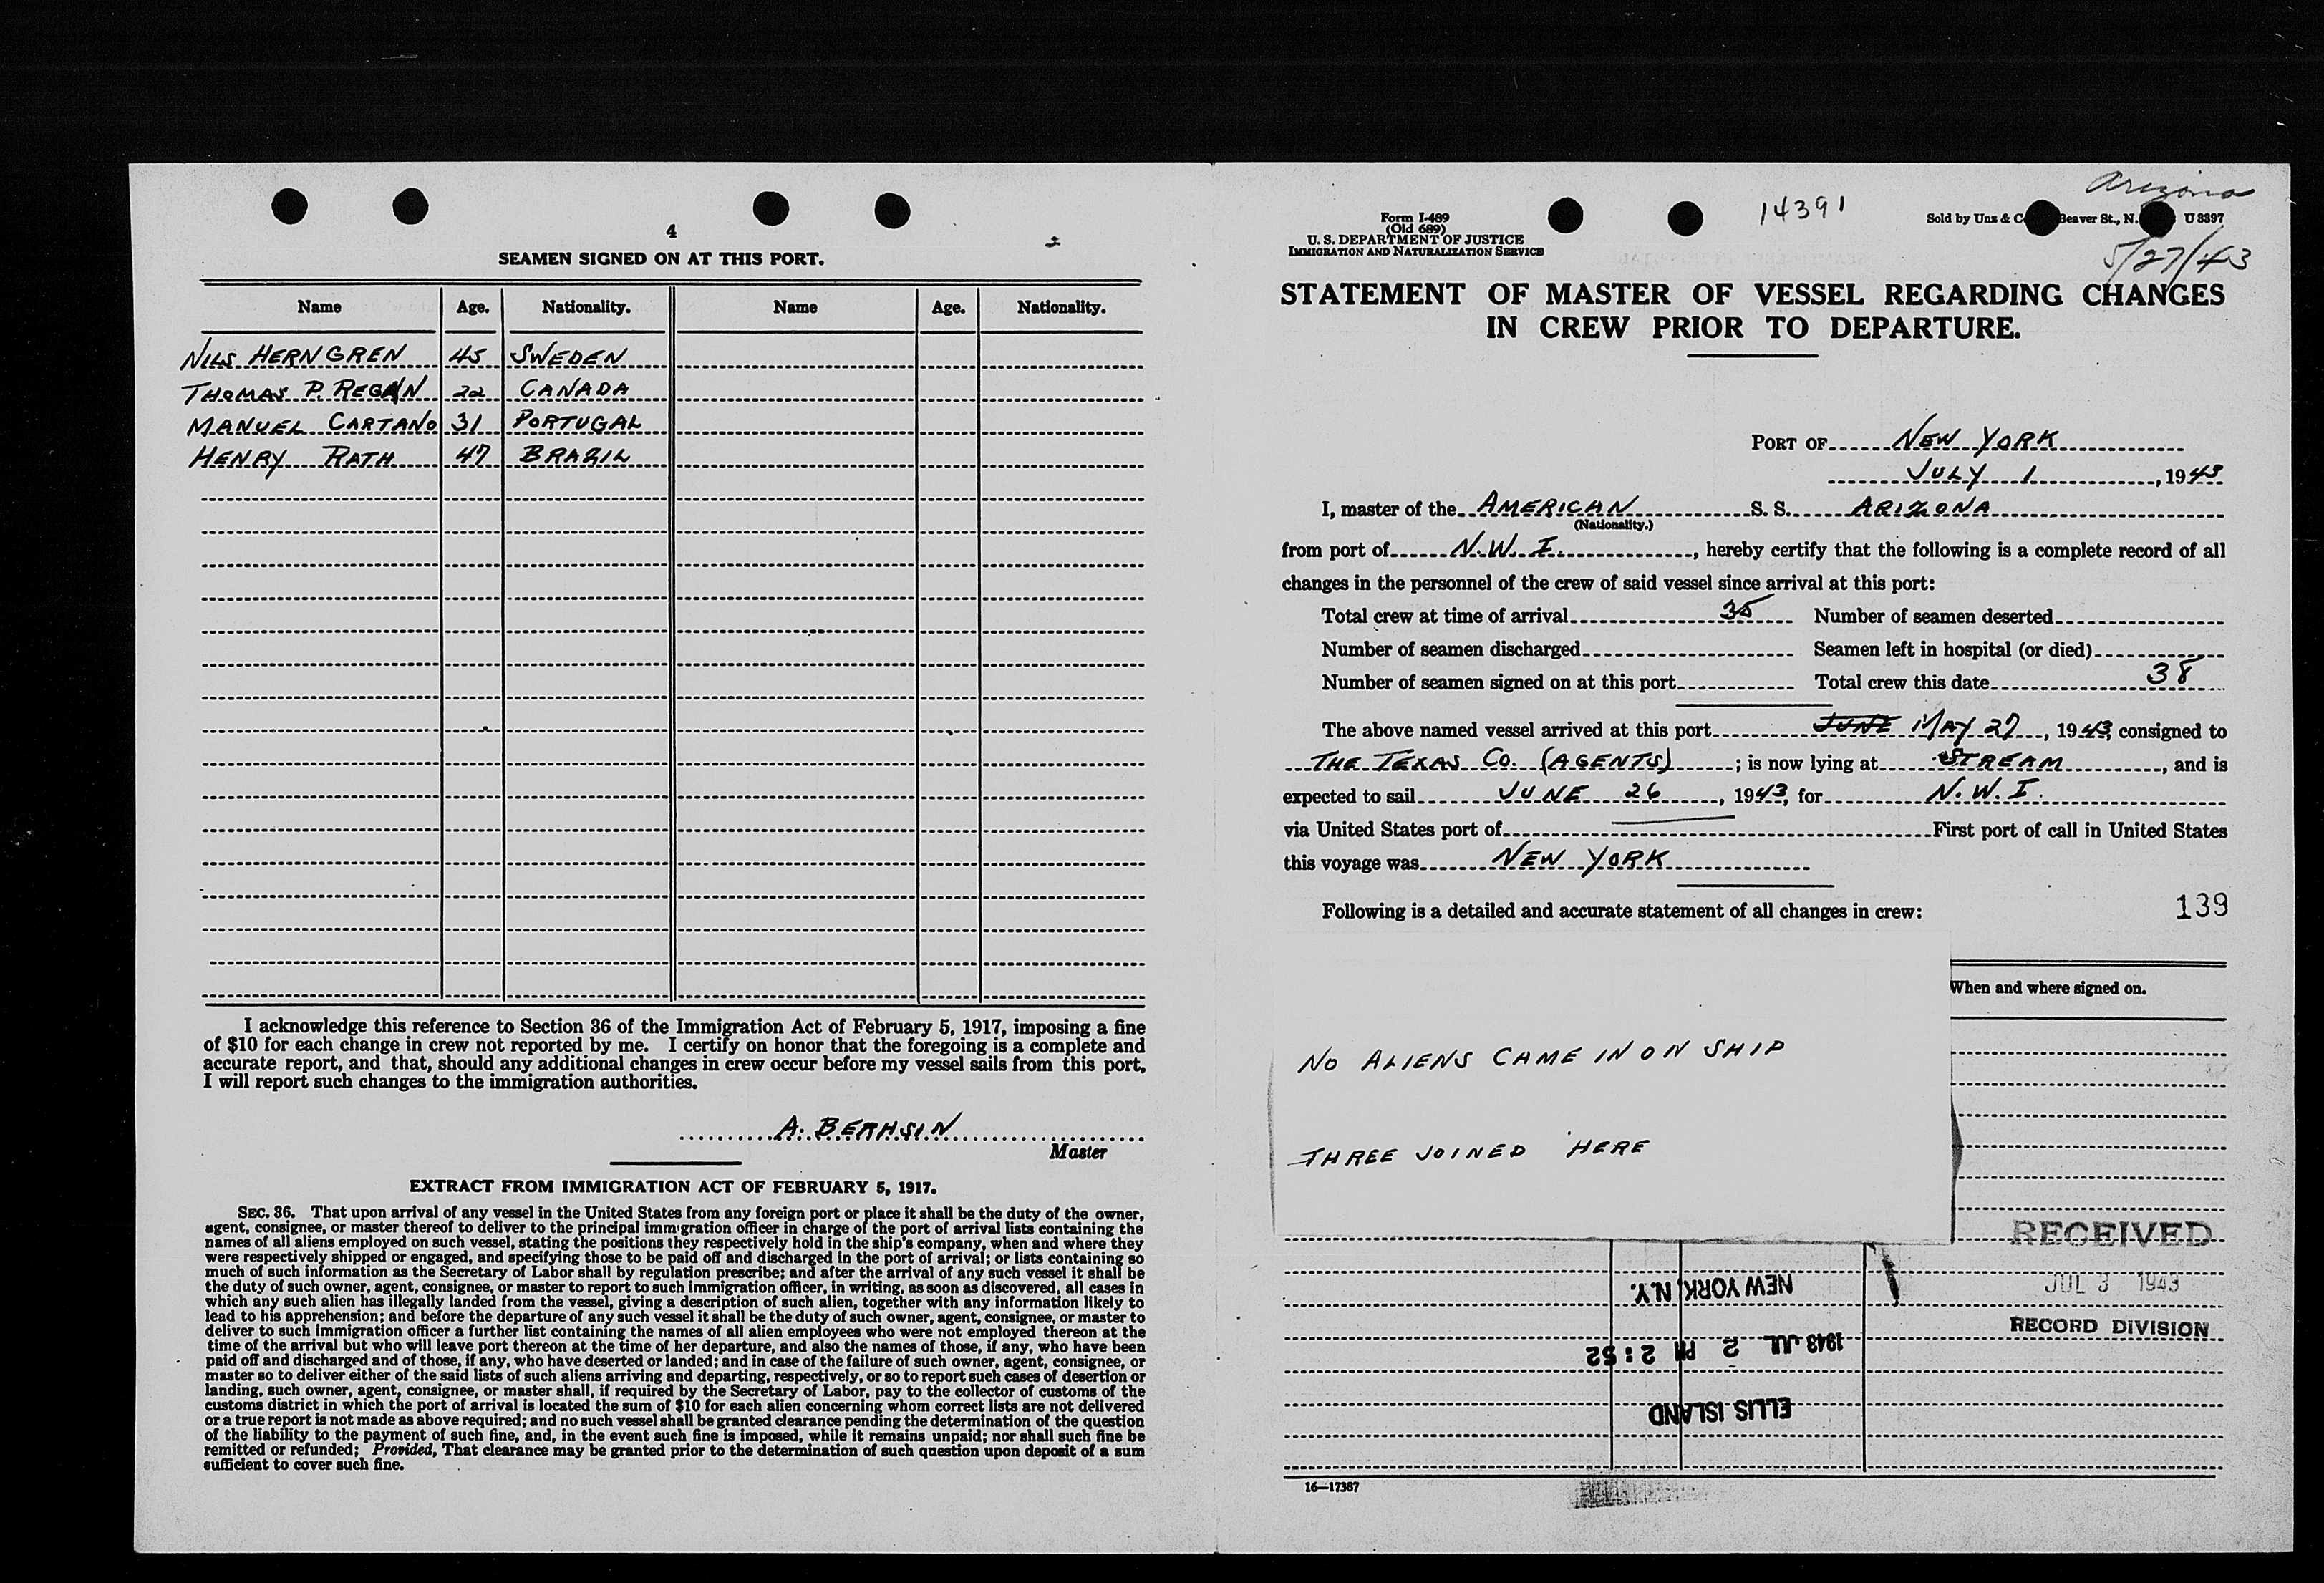 4
2
SEAMEN SIGNED ON AT THIS PORT.
Name Age. Nationality. Name Age. Nationality.
NILS HERNGREN 45 SWEDEN
THOMAS P. REGAN 22 CANADA
MANUEL CARTANO 31 PORTUGAL
HENRY RATH 47 BRAZIL
I acknowledge this reference to Section 36 of the Immigration Act of February 5, 1917, imposing a fine
of $10 for each change in crew not reported by me. I certify on honor that the foregoing is a complete and
accurate report, and that, should any additional changes in crew occur before my vessel sails from this port,
I will report such changes to the immigration authorities.
A. BERHSIN
Master
EXTRACT FROM IMMIGRATION ACT OF FEBRUARY 5, 1917.
SEC. 36. That upon arrival of any vessel in the United States from any foreign port or place it shall be the duty of the owner,
agent, consignee, or master thereof to deliver to the principal immigration officer in charge of the port of arrival lists containing the
names of all aliens employed on such vessel, stating the positions they respectively hold in the ship's company, when and where they
were respectively shipped or engaged, and specifying those to be paid off and discharged in the port of arrival; or lists containing so
much of such information as the Secretary of Labor shall by regulation prescribe; and after the arrival of any such vessel it shall be
the duty of such owner, agent, consignee, or master to report to such immigration officer, in writing, as soon as discovered, all cases in
which any such alien has illegally landed from the vessel, giving a description of such alien, together with any information likely to
lead to his apprehension; and before the departure of any such vessel it shall be the duty of such owner, agent, consignee, or master to
deliver to such immigration officer a further list containing the names of all alien employees who were not employed thereon at the
time of the arrival but who will leave port thereon at the time of her departure, and also the names of those, if any, who have been
paid off and discharged and of those, if any, who have deserted or landed; and in case of the failure of such owner, agent, consignee, or
master so to deliver either of the said lists of such aliens arriving and departing, respectively, or so to report such cases of desertion or
landing, such owner, agent, consignee, or master shall, if required by the Secretary of Labor, pay to the collector of customs of the
customs district in which the port of arrival is located the sum of $10 for each alien concerning whom correct lists are not delivered
or a true report is not made as above required; and no such vessel shall be granted clearance pending the determination of the question
of the liability to the payment of such fine, and, in the event such fine is imposed, while it remains unpaid; nor shall such fine be
remitted or refunded; Provided, That clearance may be granted prior to the determination of such question upon deposit of a sum
sufficient to cover such fine.
Arizona
14391
Form I-489
(Old 689)
U. S. DEPARTMENT OF JUSTICE
IMMIGRATION AND NATURALIZATION SERVICE
Sold by Unz & C Beaver St., N. U 3397
5/27/43
STATEMENT OF MASTER OF VESSEL REGARDING CHANGES
IN CREW PRIOR TO DEPARTURE.
PORT OF NEW YORK
JULY 1, 1943
I, master of the AMERICAN S. S. ARIZONA
(Nationality.)
from port of N.W.I., hereby certify that the following is a complete record of all
changes in the personnel of the crew of said vessel since arrival at this port:
Total crew at time of arrival 35 Number of seamen deserted
Number of seamen discharged Seamen left in hospital (or died)
Number of seamen signed on at this port Total crew this date 38
The above named vessel arrived at this port JUNE MAY 27, 1943, consigned to
THE TEXAS CO. (AGENTS); is now lying at STREAM, and is
expected to sail JUNE 26, 1943, for N.W.I.
via United States port of First port of call in United States
this voyage was NEW YORK
Following is a detailed and accurate statement of all changes in crew:
139
When and where signed on.
NO ALIENS CAME IN ON SHIP
THREE JOINED HERE
RECEIVED
JUL 3 1943
RECORD DIVISION
NEW YORK, N.Y.
1943 JUL 2 PM 2:52
ELLIS ISLAND
16—17387